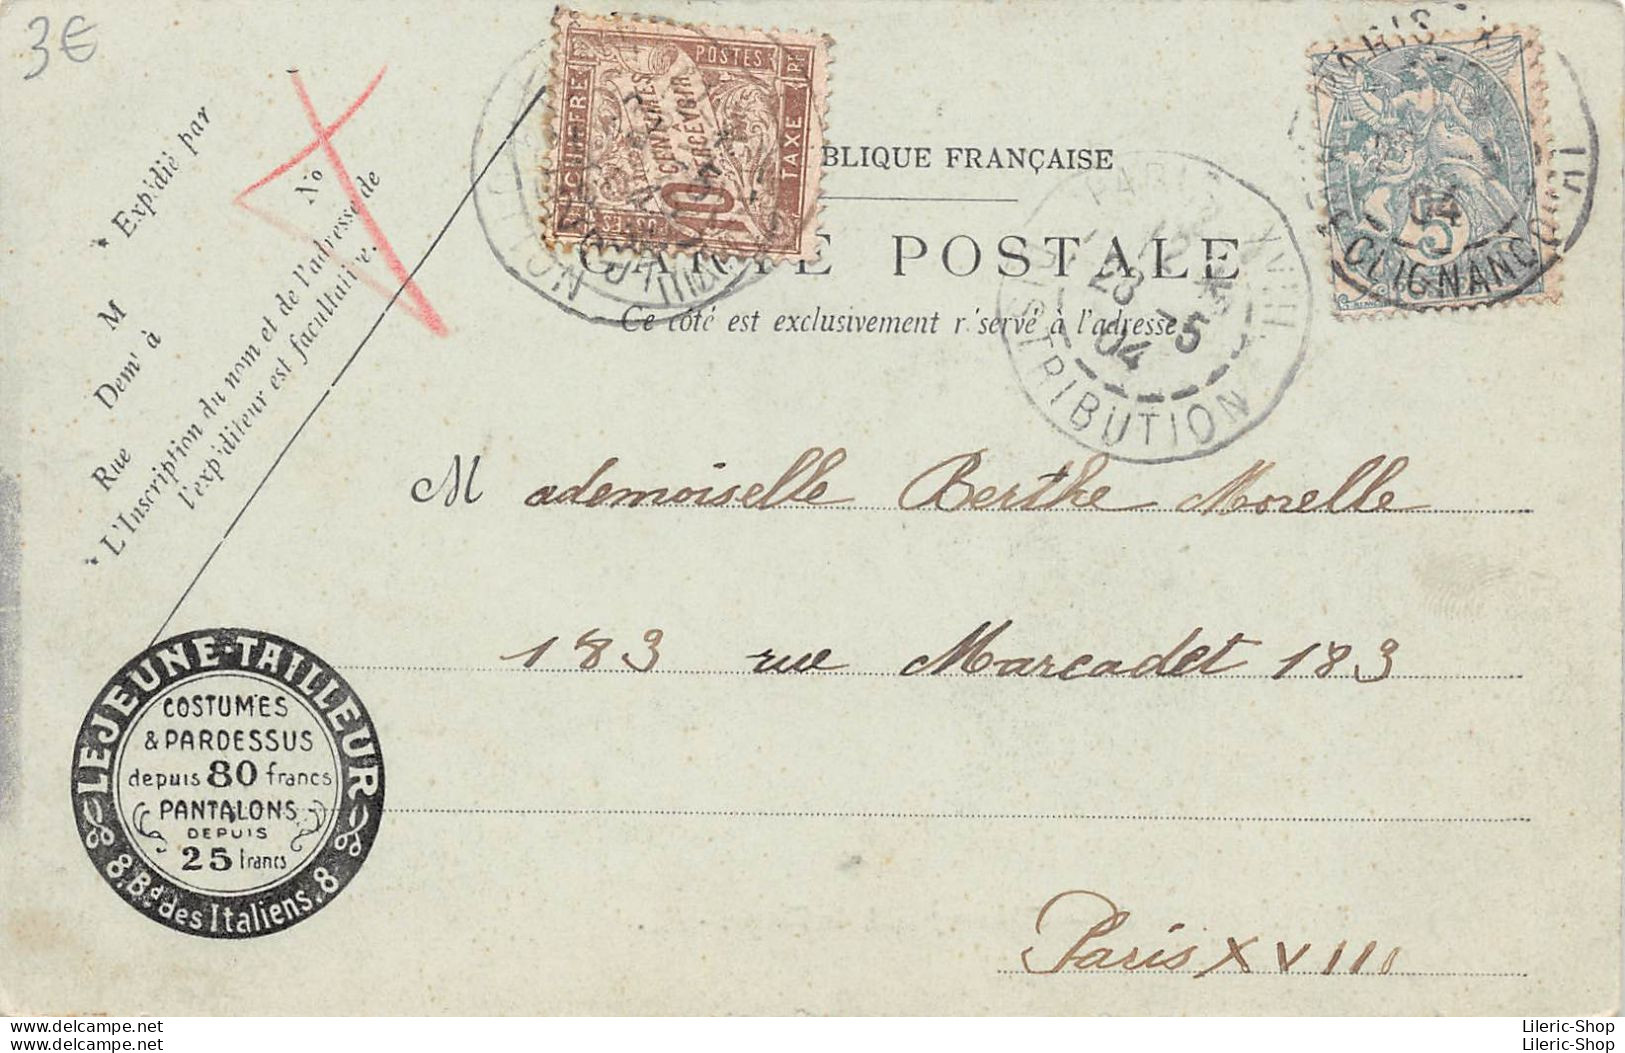 3€
* Expédié par
M
Dem' à
Rue
No
* L'Inscription du nom et de l'adresse de
l'expéditeur est facultative.
CHIFFRE
POSTES
TAXE
RF
10
CENTIMES
À
PERCEVOIR
BLIQUE FRANÇAISE
CARTE POSTALE
Ce côté est exclusivement r.'servé à l'adresse
PARIS XVIII
23 -5
04
DISTRIBUTION
PARIS
04
CLIGNANCOURT
5
Mademoiselle Berthe Morelle
183 rue Marcadet 183
Paris XVIII
LEJEUNE-TAILLEUR
COSTUMES
& PARDESSUS
depuis 80 francs
PANTALONS
DEPUIS
25 francs
8, Bd des Italiens, 8
www.delcampe.net lileric-shop
www.delcampe.net lileric-shop
Lileric-Shop
Lileric-Shop